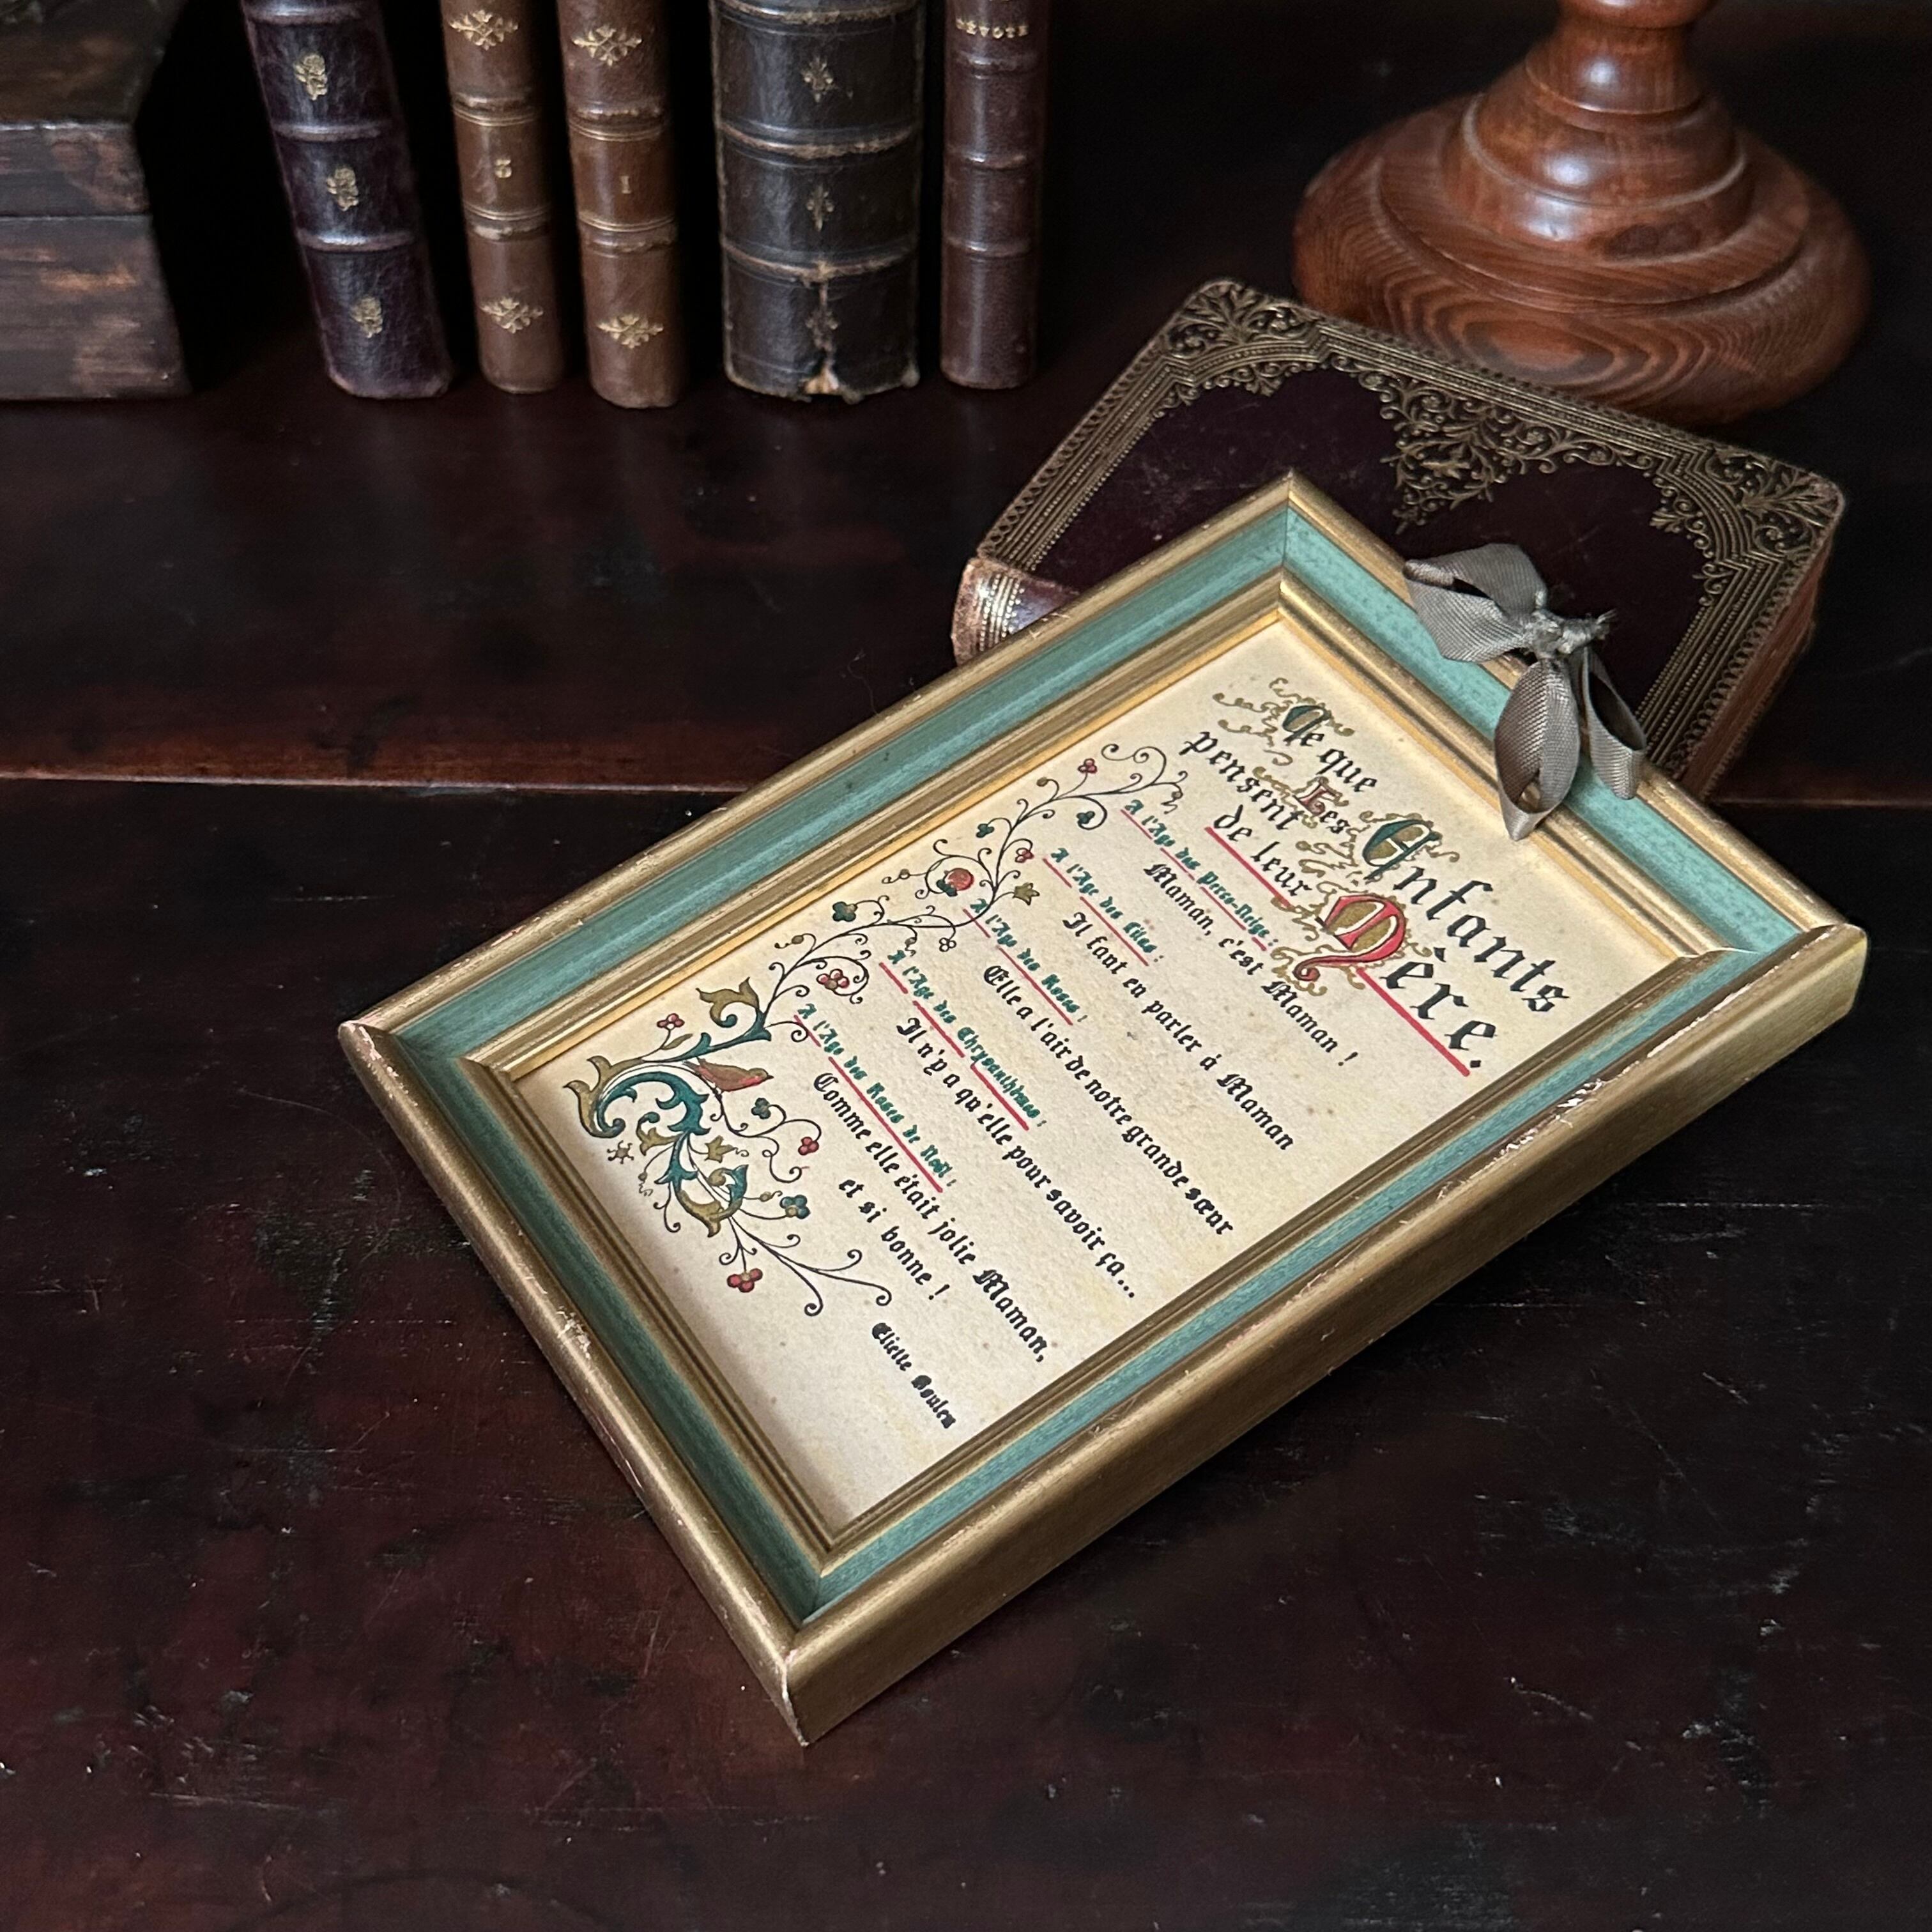 3
1
Ce que
Les Enfants
pensent
de leur Mère.
A l'Age des Perce-Neige :
Maman, c'est Maman !
A l'Age des Lilas :
Il faut en parler à Maman
A l'Age des Roses :
Elle a l'air de notre grande sœur
A l'Age des Chrysanthèmes :
Il n'y a qu'elle pour savoir ça...
A l'Age des Roses de Noël :
Comme elle était jolie Maman,
et si bonne !